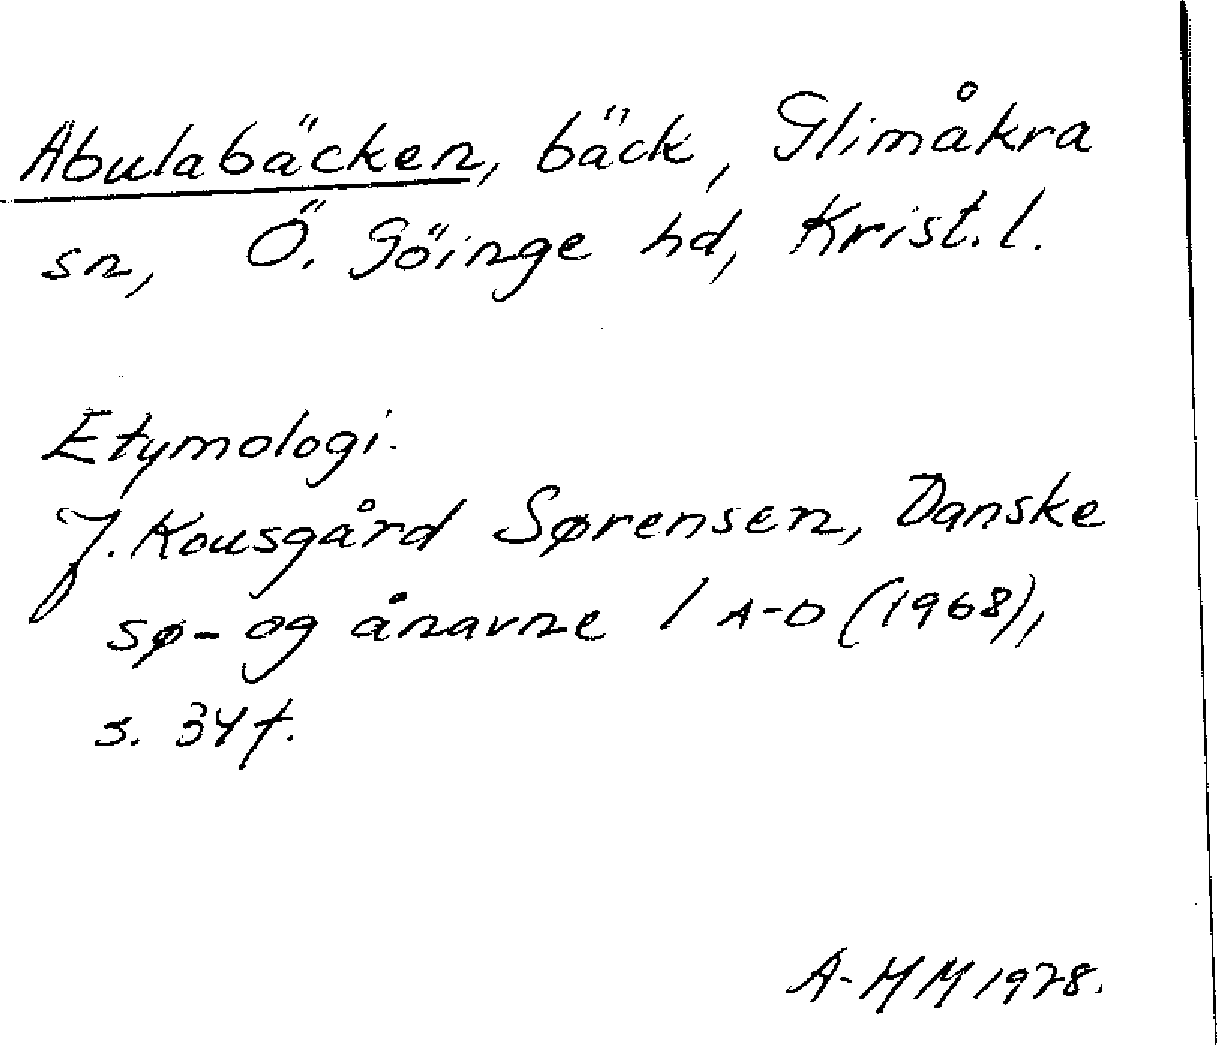 Abulabäcken, bäck, Glimåkra
sn, Ö. Göinge hd, Krist. l.
Etymologi.
J. Kousgård Sørensen, Danske
sø- og ånavne 1 A-D (1968),
s. 34 f.
A-MM 1978.